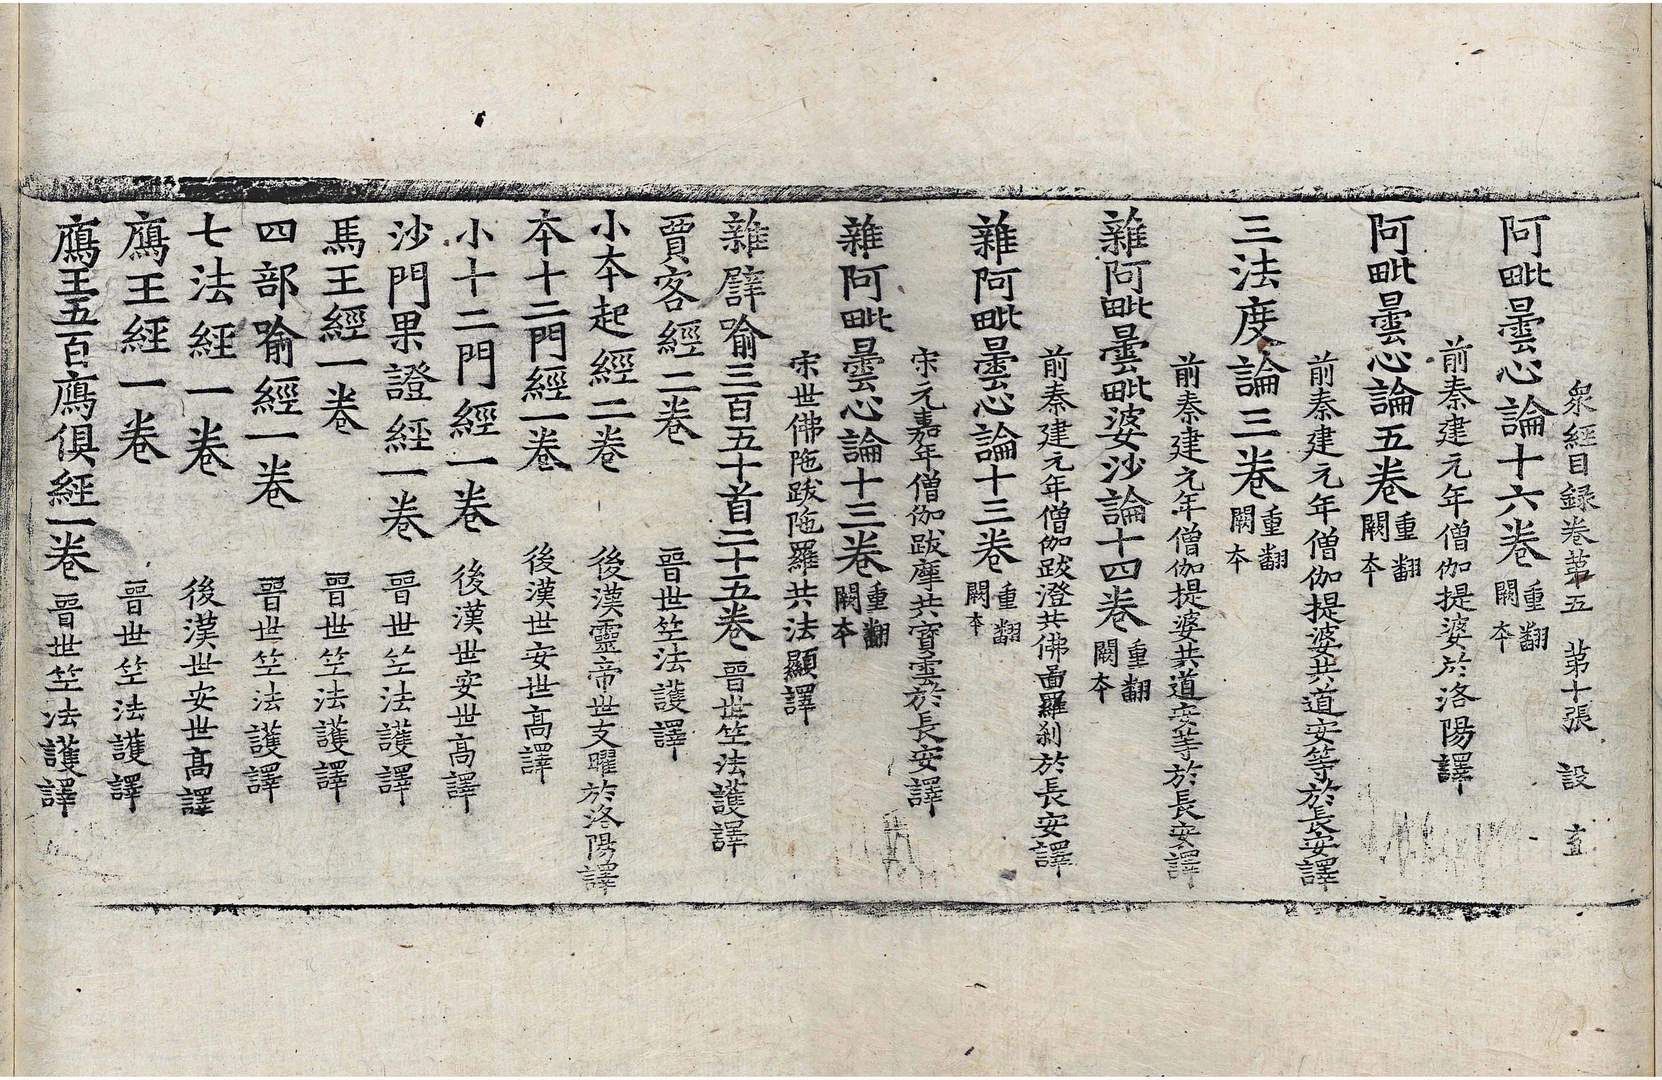 衆經目録卷第五 第十張 設
阿毗曇心論十六卷 重翻闕本
前秦建元年僧伽提婆於洛陽譯
阿毗曇心論五卷 重翻闕本
前秦建元年僧伽提婆共道安等於長安譯
三法度論三卷 重翻闕本
前秦建元年僧伽提婆共道安等於長安譯
雜阿毗曇毗婆沙論十四卷 重翻闕本
前秦建元年僧伽跋澄共佛啚羅剎於長安譯
雜阿毗曇心論十三卷 重翻闕本
宋元嘉年僧伽跋摩共寶雲於長安譯
雜阿毗曇心論十三卷 重翻闕本
宋世佛陁跋陁羅共法顯譯
雜譬喻三百五十首二十五卷 晉世竺法護譯
賈客經二卷 晉世竺法護譯
小本起經二卷 後漢靈帝世支曜於洛陽譯
本十二門經一卷 後漢世安世高譯
小十二門經一卷 後漢世安世高譯
沙門果證經一卷 晉世竺法護譯
馬王經一卷 晉世竺法護譯
四部喻經一卷 晉世竺法護譯
七法經一卷 後漢世安世高譯
鴈王經一卷 晉世竺法護譯
鴈王五百鴈俱經一卷 晉世竺法護譯